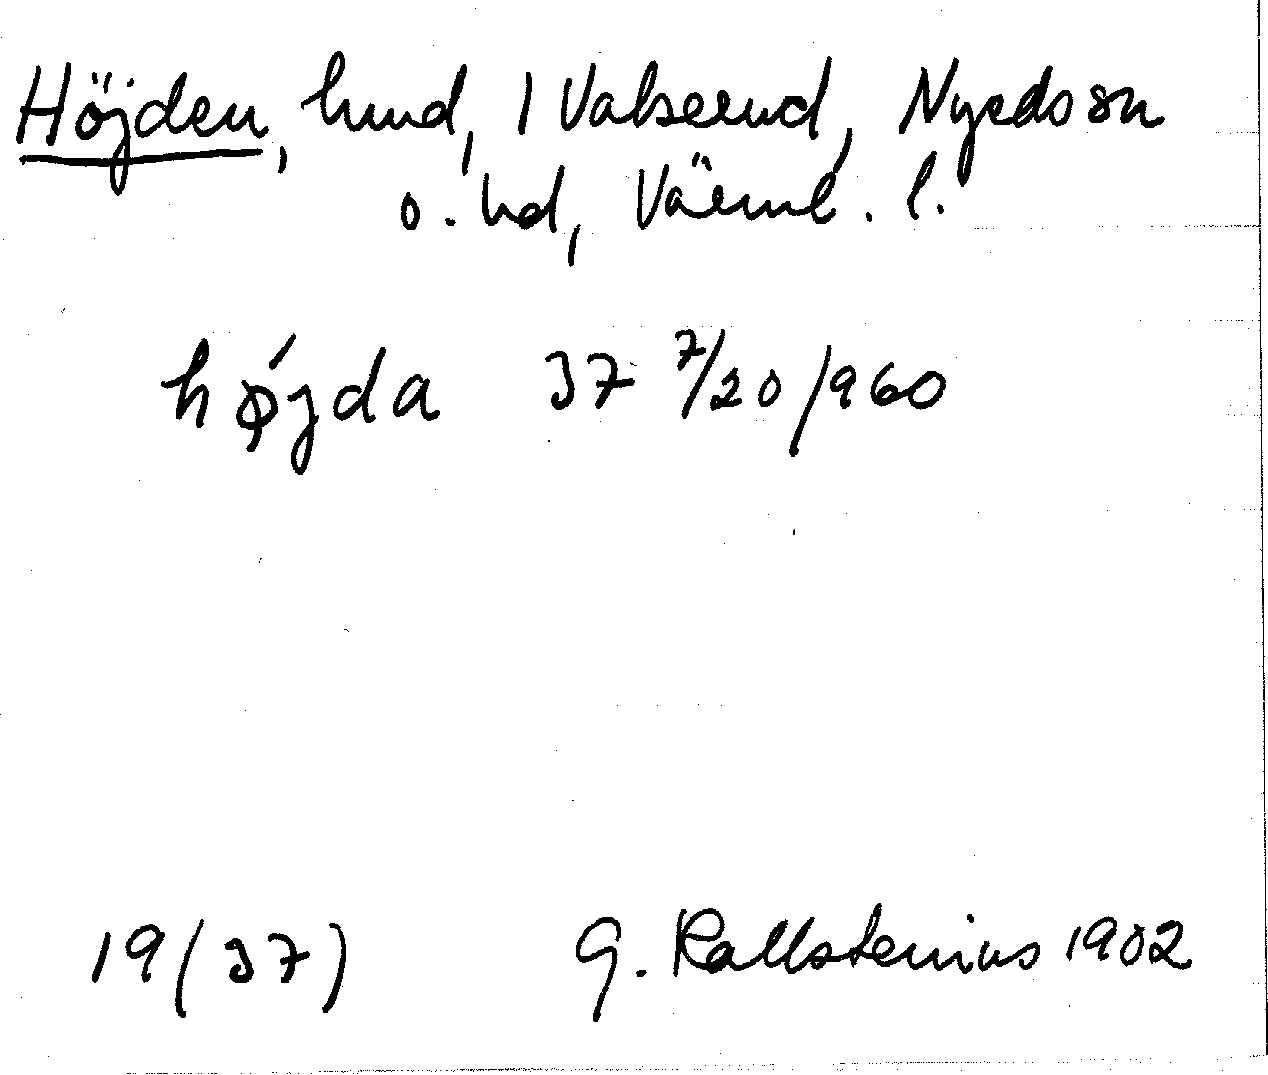 Höjden, hmd, 1 Valserud, Nyeds sn
o. hd, Värml. l.
højda 37 7/20/960
19(37) G. Kallstenius 1902